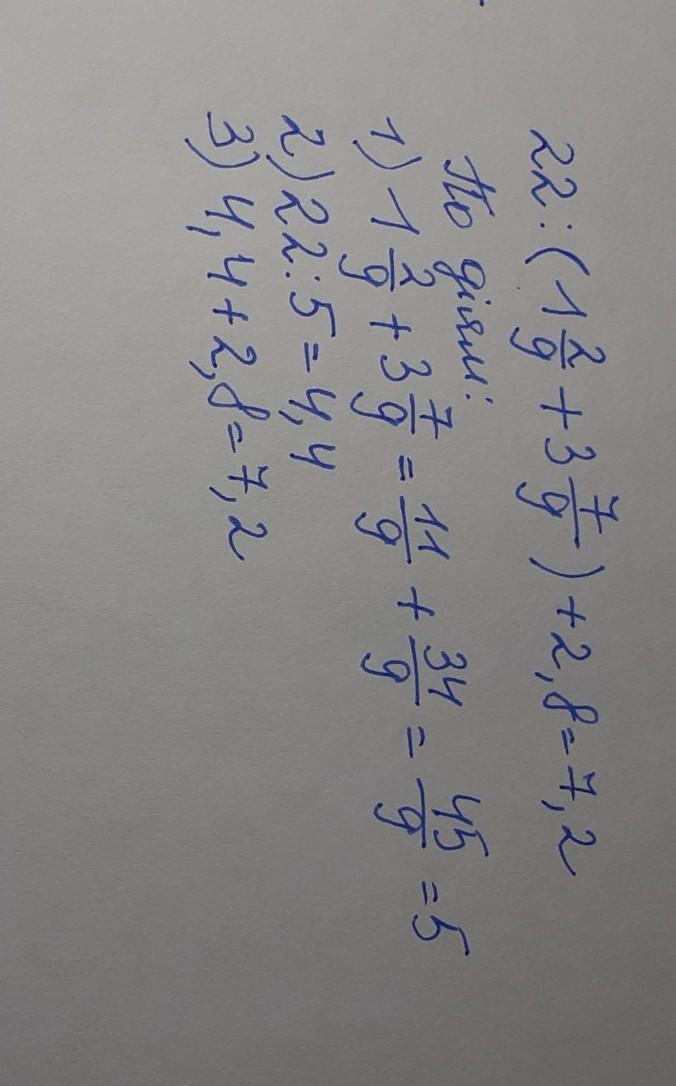 22:(1 2/9 + 3 7/9) + 2,8 = 7,2
По діям:
1) 1 2/9 + 3 7/9 = 11/9 + 34/9 = 45/9 = 5
2) 22:5 = 4,4
3) 4,4 + 2,8 = 7,2